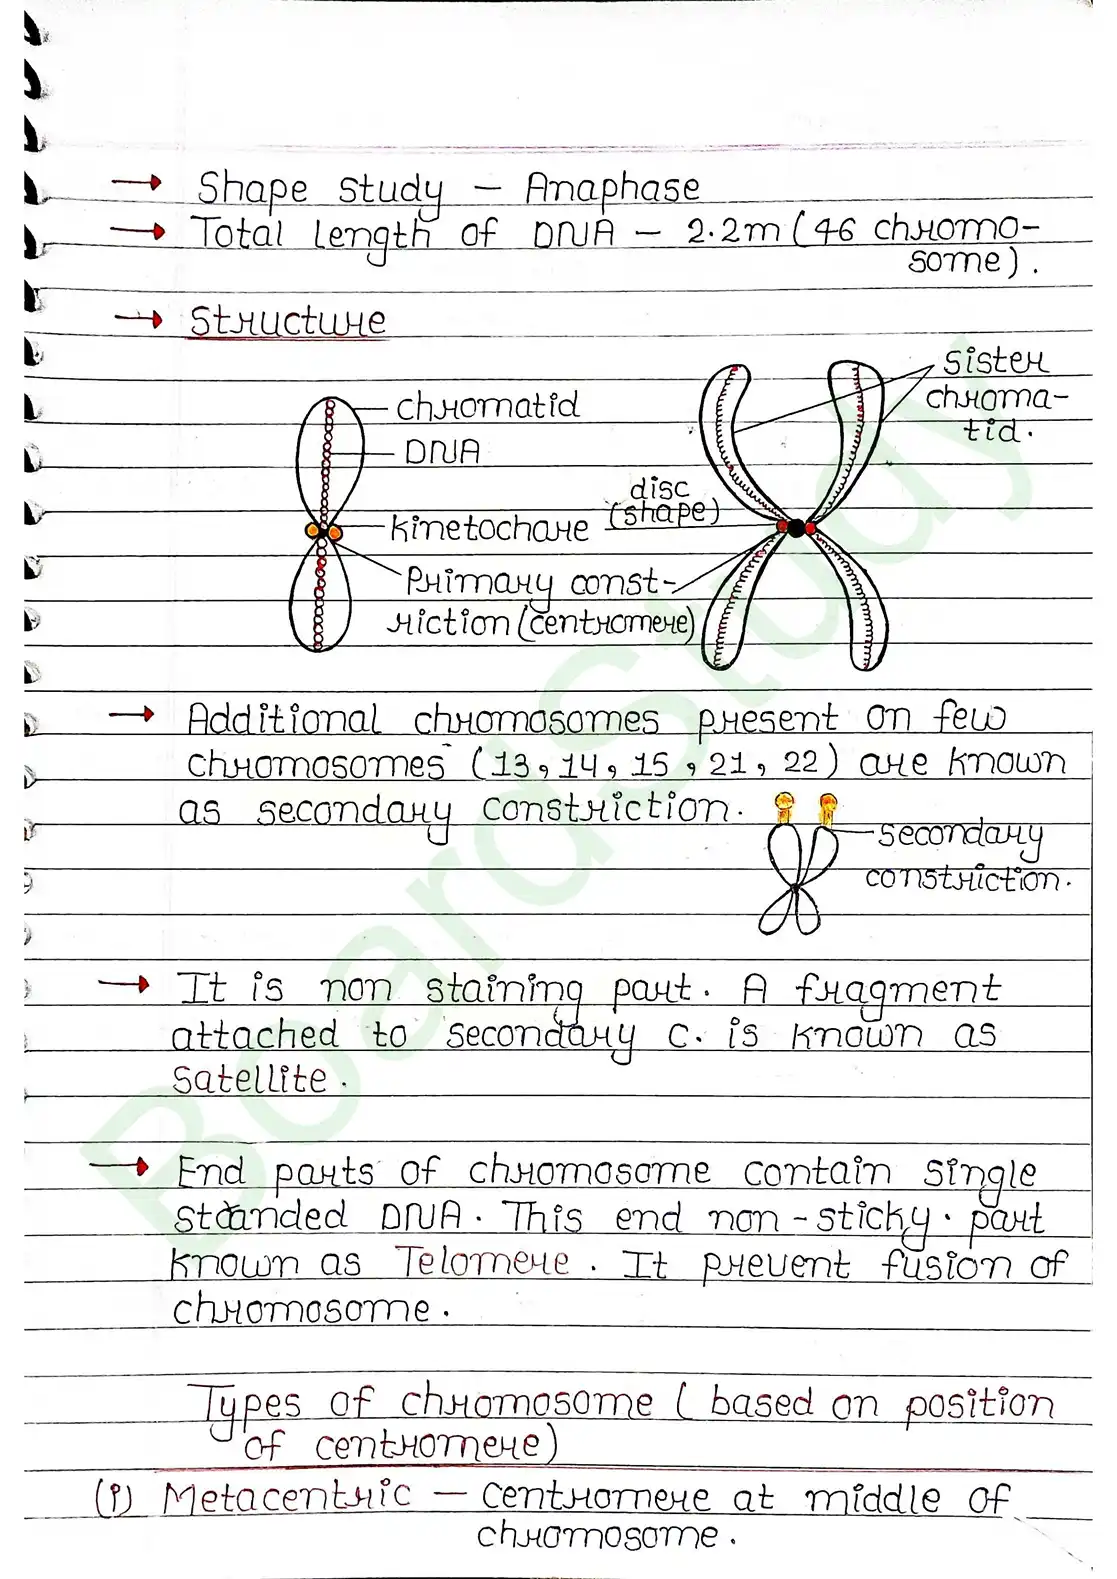 → Shape study – Anaphase
→ Total length of DNA – 2.2m (46 chromo-
some).
→ Structure
sister
chroma-
tid.
chromatid
DNA
disc
kinetochore (shape)
Primary const-
riction (centromere)
→ Additional chromosomes present on few
chromosomes (13, 14, 15, 21, 22) are known
as secondary constriction.
secondary
constriction.
→ It is non staining part. A fragment
attached to secondary c. is known as
satellite.
→ End parts of chromosome contain single
stranded DNA. This end non-sticky. part
known as Telomere. It prevent fusion of
chromosome.
Types of chromosome (based on position
of centromere)
(i) Metacentric – centromere at middle of
chromosome.
BoardStudy